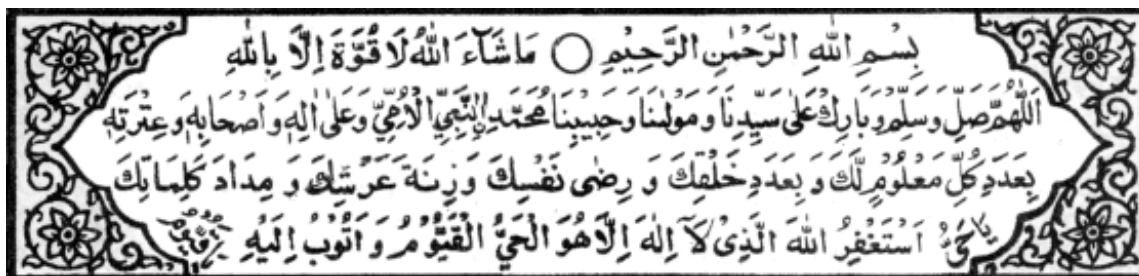 بِسْمِ اللهِ الرَّحْمٰنِ الرَّحِيْمِ ○ مَا شَآءَ اللهُ لَا قُوَّةَ اِلَّا بِاللهِ
اَللّٰهُمَّ صَلِّ وَسَلِّمْ وَبَارِكْ عَلٰى سَيِّدِنَا وَمَوْلٰىنَا وَحَبِيْبِنَا مُحَمَّدِ ۨالنَّبِيِّ الْاُمِّيِّ وَعَلٰى اٰلِهٖ وَاَصْحَابِهٖ وَعِتْرَتِهٖ
بِعَدَدِ كُلِّ مَعْلُوْمٍ لَّكَ وَ بِعَدَدِ خَلْقِكَ وَ رِضٰى نَفْسِكَ وَ زِنَةَ عَرْشِكَ وَ مِدَادَ كَلِمَاتِكَ
اَسْتَغْفِرُ اللهَ الَّذِىْ لَآ اِلٰهَ اِلَّا هُوَ الْحَيُّ الْقَيُّوْمُ وَ اَتُوْبُ اِلَيْهِ يَا حَيُّ يَا قَيُّوْمُ